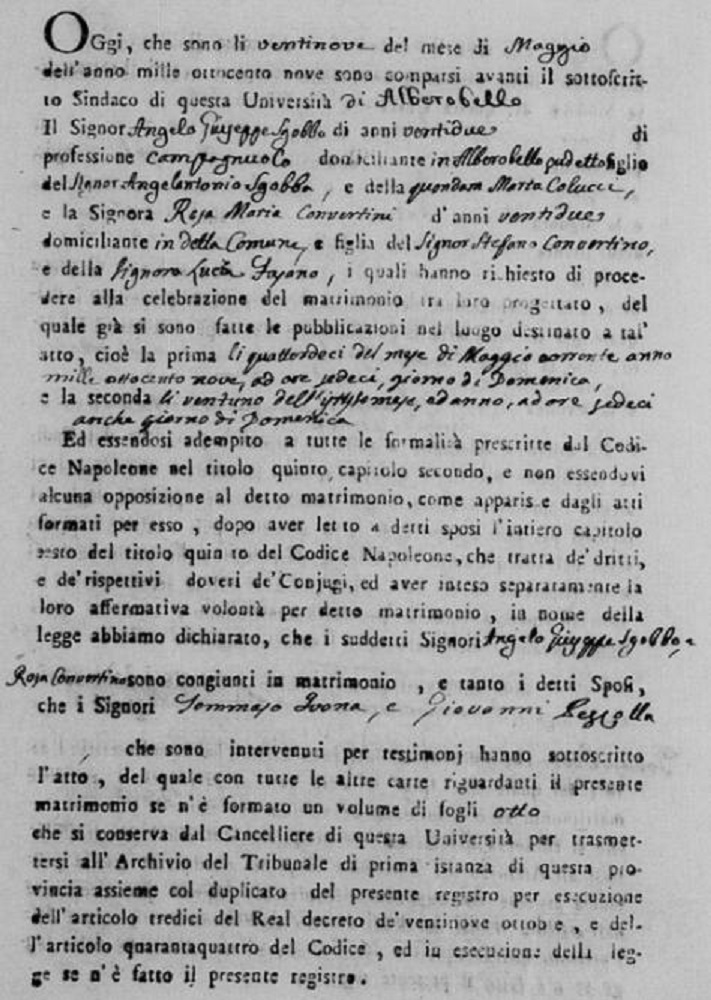 OGgi, che sono li ventinove del mese di Maggio
dell'anno mille ottocento nove sono comparsi avanti il sottoscrit-
to Sindaco di questa Università di Alberobello
Il Signor Angelo Giuseppe Sgobbo di anni ventidue di
professione Campagnuolo domiciliante in Alberobello pudetto figlio
del Signor Angelantonio Sgobba, e della quondam Marta Colucci,
e la Signora Rosa Maria Convertini d'anni ventidue
domiciliante in detta Comune, e figlia del Signor Stefano Convertino,
e della Signora Lucia Fasano, i quali hanno richiesto di proce-
dere alla celebrazione del matrimonio tra loro progettato, del
quale già si sono fatte le pubblicazioni nel luogo destinato a tal'
atto, cioè la prima li quattordeci del mese di Maggio corrente anno
mille ottocento nove, ad ore sedeci, giorno di Domenica,
e la seconda li ventuno dell' mese, ed anno, ad ore sedeci
anche giorno di Domenica
Ed essendosi adempito a tutte le formalità prescritte dal Codi-
ce Napoleone nel titolo quinto, capitolo secondo, e non essendovi
alcuna opposizione al detto matrimonio, come apparisce dagli atti
formati per esso, dopo aver letto a detti sposi l'intiero capitolo
sesto del titolo quinto del Codice Napoleone, che tratta de'dritti,
e de'rispettivi doveri de'Conjugi, ed aver inteso separatamente la
loro affermativa volontà per detto matrimonio, in nome della
legge abbiamo dichiarato, che i suddetti Signori Angelo Giuseppe Sgobbo, e
Rosa Convertino sono congiunti in matrimonio, e tanto i detti Sposi,
che i Signori Tommaso Ivona, e Giovanni Pezzolla
che sono intervenuti per testimonj hanno sottoscritto
l'atto, del quale con tutte le altre carte riguardanti il presente
matrimonio se n'è formato un volume di fogli otto
che si conserva dal Cancelliere di questa Università per trasmet-
tersi all'Archivio del Tribunale di prima istanza di questa pro-
vincia assieme col duplicato del presente registro per esecuzione
dell'articolo tredici del Real decreto de'ventinove ottobre, e del-
l'articolo quarantaquattro del Codice, ed in esecuzione della leg-
ge se n'è fatto il presente registro.